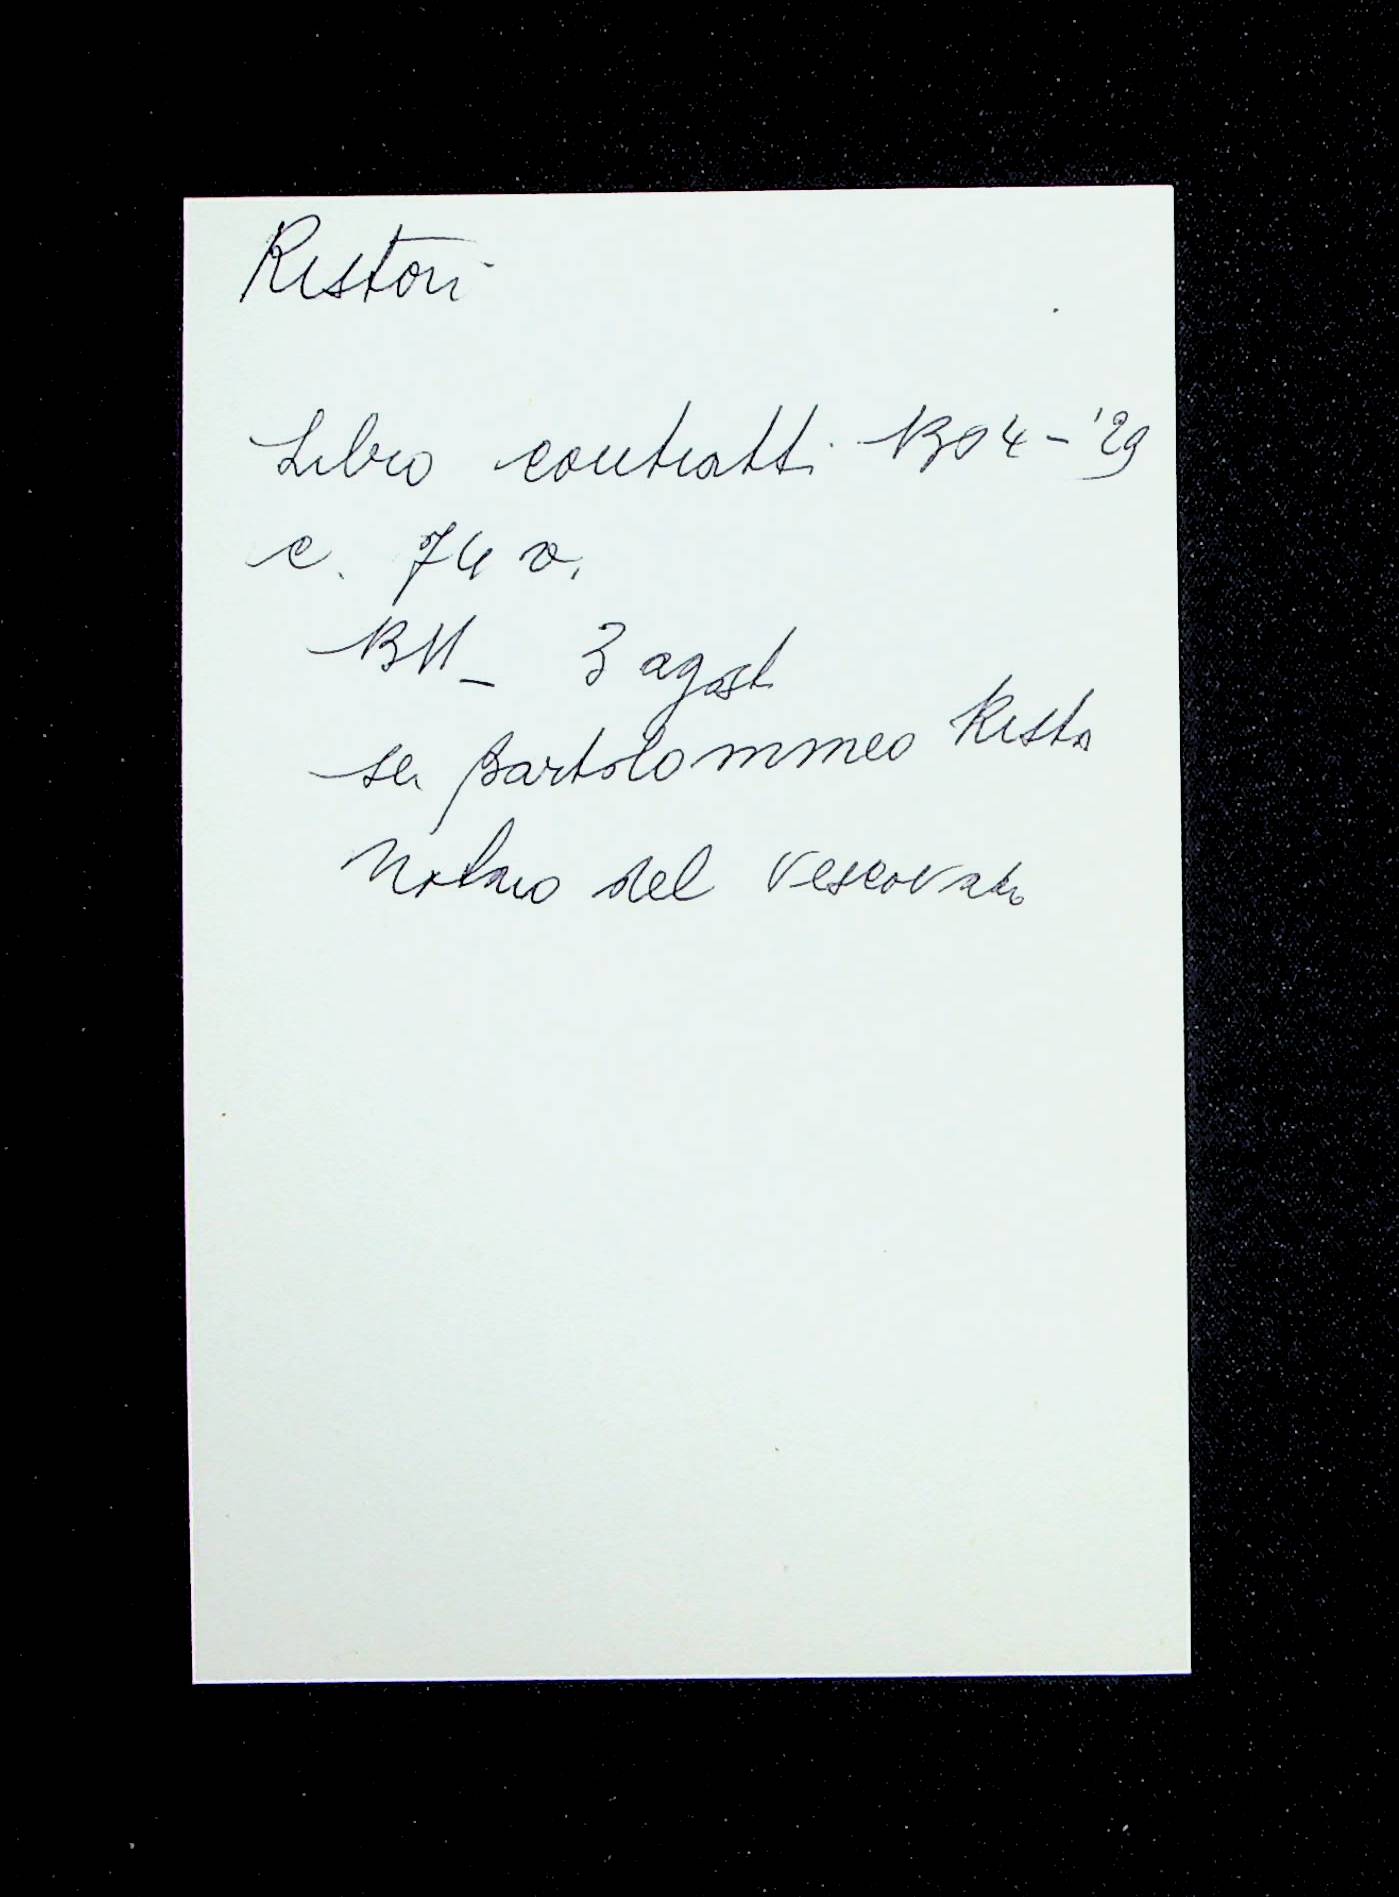 Ristori
Libro contratti 1304-'29
c. 74 v.
1311_ 3 agost
ser Bartolommeo Risto
Notaio del Vescovato